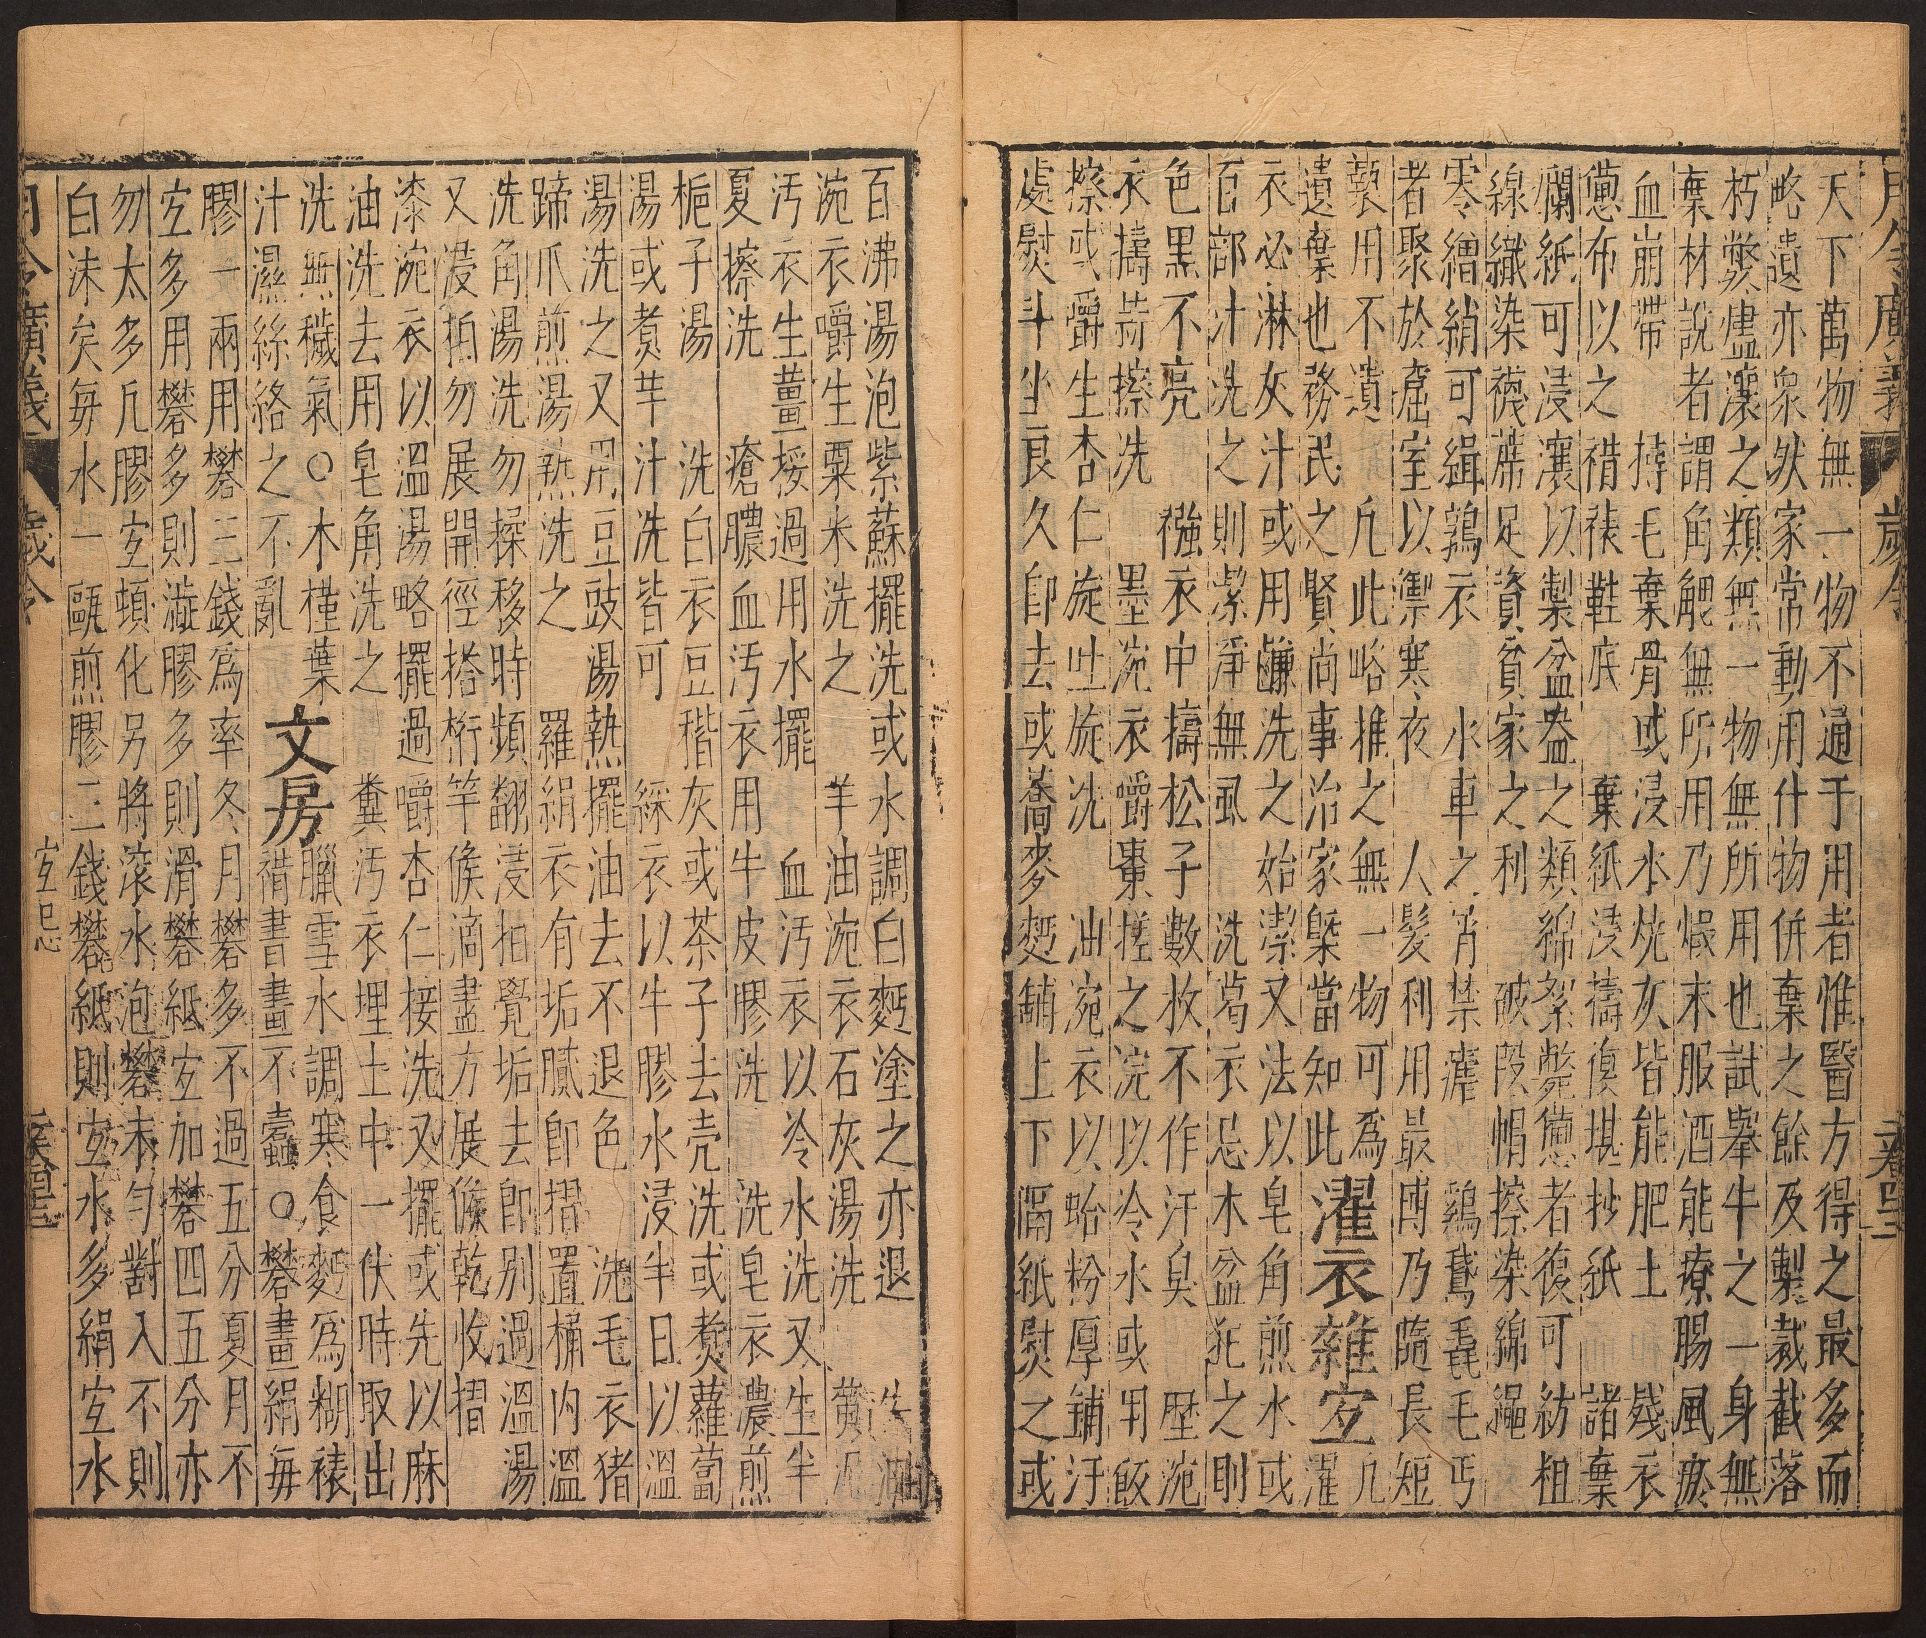 月令廣義 歲令 二卷
天下萬物無一物不通于用者惟醫方得之最多而
略遺亦衆然家常動用什物併棄之餘及製裁截落
朽獘燼瀼之類無一物無所用也試舉牛之一身無
棄材說者謂角䚡無所用乃燬末服酒能療腸風瘀
血崩帶 摶毛棄骨或浸水燒灰皆能肥土 殘衣
憊布以之褙裱鞋底 棄紙浸擣復堪抄紙 諸棄
爛紙可浸瀼以製盆盎之類綿絮斃憊者復可紡粗
線織染襪蓆足資貧家之利 破段帽擦染綿繩
零繒綃可緝鶉衣 水車之筲禁㢖 鷄鵞毳毛丐
者聚於窟室以禦寒夜 人髮利用最博乃隨長短
褻用不遺 凡此峪推之無一物可為
遺棄也務民之賢尚事治家槩當知此濯衣雜宜濯
衣必淋灰汁或用鹻洗之始潔又法以皂角煎水或
百部汁洗之則潔淨無虱 洗葛衣忌木盆犯之則
色黑不亮 襁衣中擣松子數枚不作汗臭 壓涴
衣擣蒜擦洗 墨涴衣嚼棗搓之浣以冷水或用飯
擦或嚼生杏仁旋吐旋洗 油涴衣以蛤粉厚鋪汙
處熨斗坐良久卽去或蕎麥麪鋪上下隔紙熨之或
百沸湯泡紫蘇擺洗或水調白麪塗之亦退 牛油
涴衣嚼生粟米洗之 羊油涴衣石灰湯洗 黃泥
汚衣生薑挼過用水擺 血汚衣以冷水洗又生半
夏擦洗 瘡膿血汚衣用牛皮膠洗 洗皂衣濃煎
梔子湯 洗白衣豆稭灰或茶子去壳洗或煑蘿蔔
湯或煑芋汁洗皆可 綵衣以牛膠水浸半日以溫
湯洗之又用豆豉湯熱擺油去不退色 洗毛衣猪
蹄爪煎湯熱洗之 羅絹衣有垢膩卽摺置桶內溫
洗角湯洗勿操移時頻翻浸拍覺垢去卽別過溫湯
又浸拍勿展開徑搭桁竿候滴盡方展候乾收摺
漆涴衣以溫湯略擺過嚼杏仁接洗又擺或先以麻
油洗去用皂角洗之 糞汚衣埋土中一伏時取出
洗無穢氣○木槿葉 臘雪水調寒食麪為糊裱
汁濕絲絡之不亂 文房褙書畫不蠹○礬畫絹每
膠一兩用礬三錢為率冬月礬多不過五分夏月不
宜多用礬多則澁膠多則滑礬紙宜加礬四五分亦
勿太多凡膠宜頓化另將滾水泡礬末勻對入不則
白沫矣每水一甌煎膠三錢礬紙則宜水多絹宜水
月令廣義 歲令 宜忌